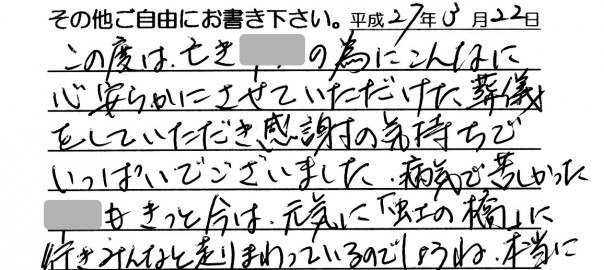 その他ご自由にお書き下さい。平成27年13月22日
この度は、亡き の為にこんなに
心安らかにさせていただけた、葬儀
をしていただき感謝の気持ちで
いっぱいでございました。病気で苦しかった
もきっと今は、元気に「虹の橋」に
行きみんなと走りまわっているのでしょうね。本当に